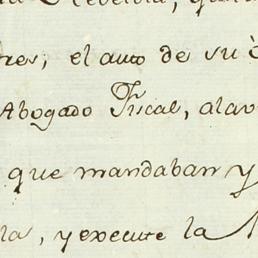 res, el auto de su
Abogado Fiscal, alav
que mandaban y
la, y execute la